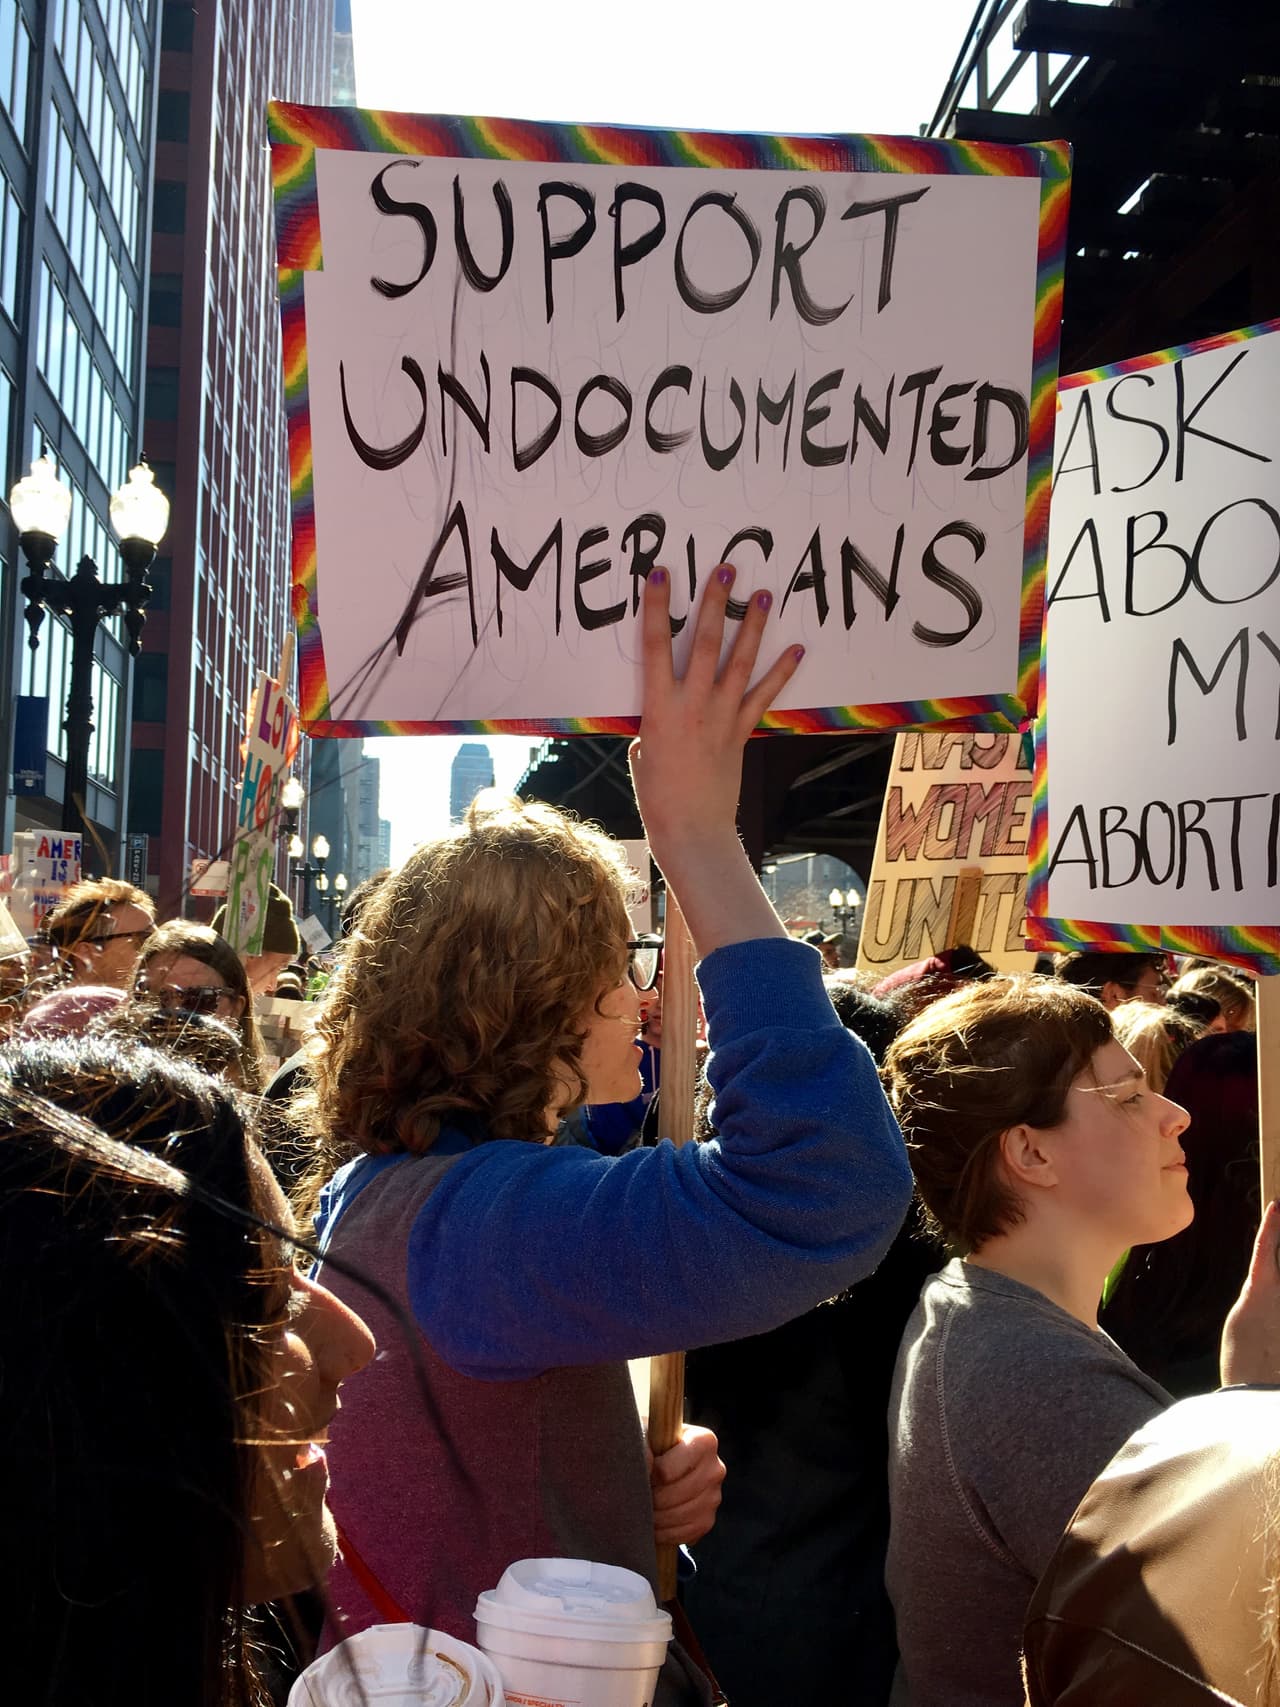 SUPPORT
UNDOCUMENTED
AMERICANS
ASK
ABO
MY
ABORTI
NASTY
WOME
UNITE
LOV
HO
AMER
IS